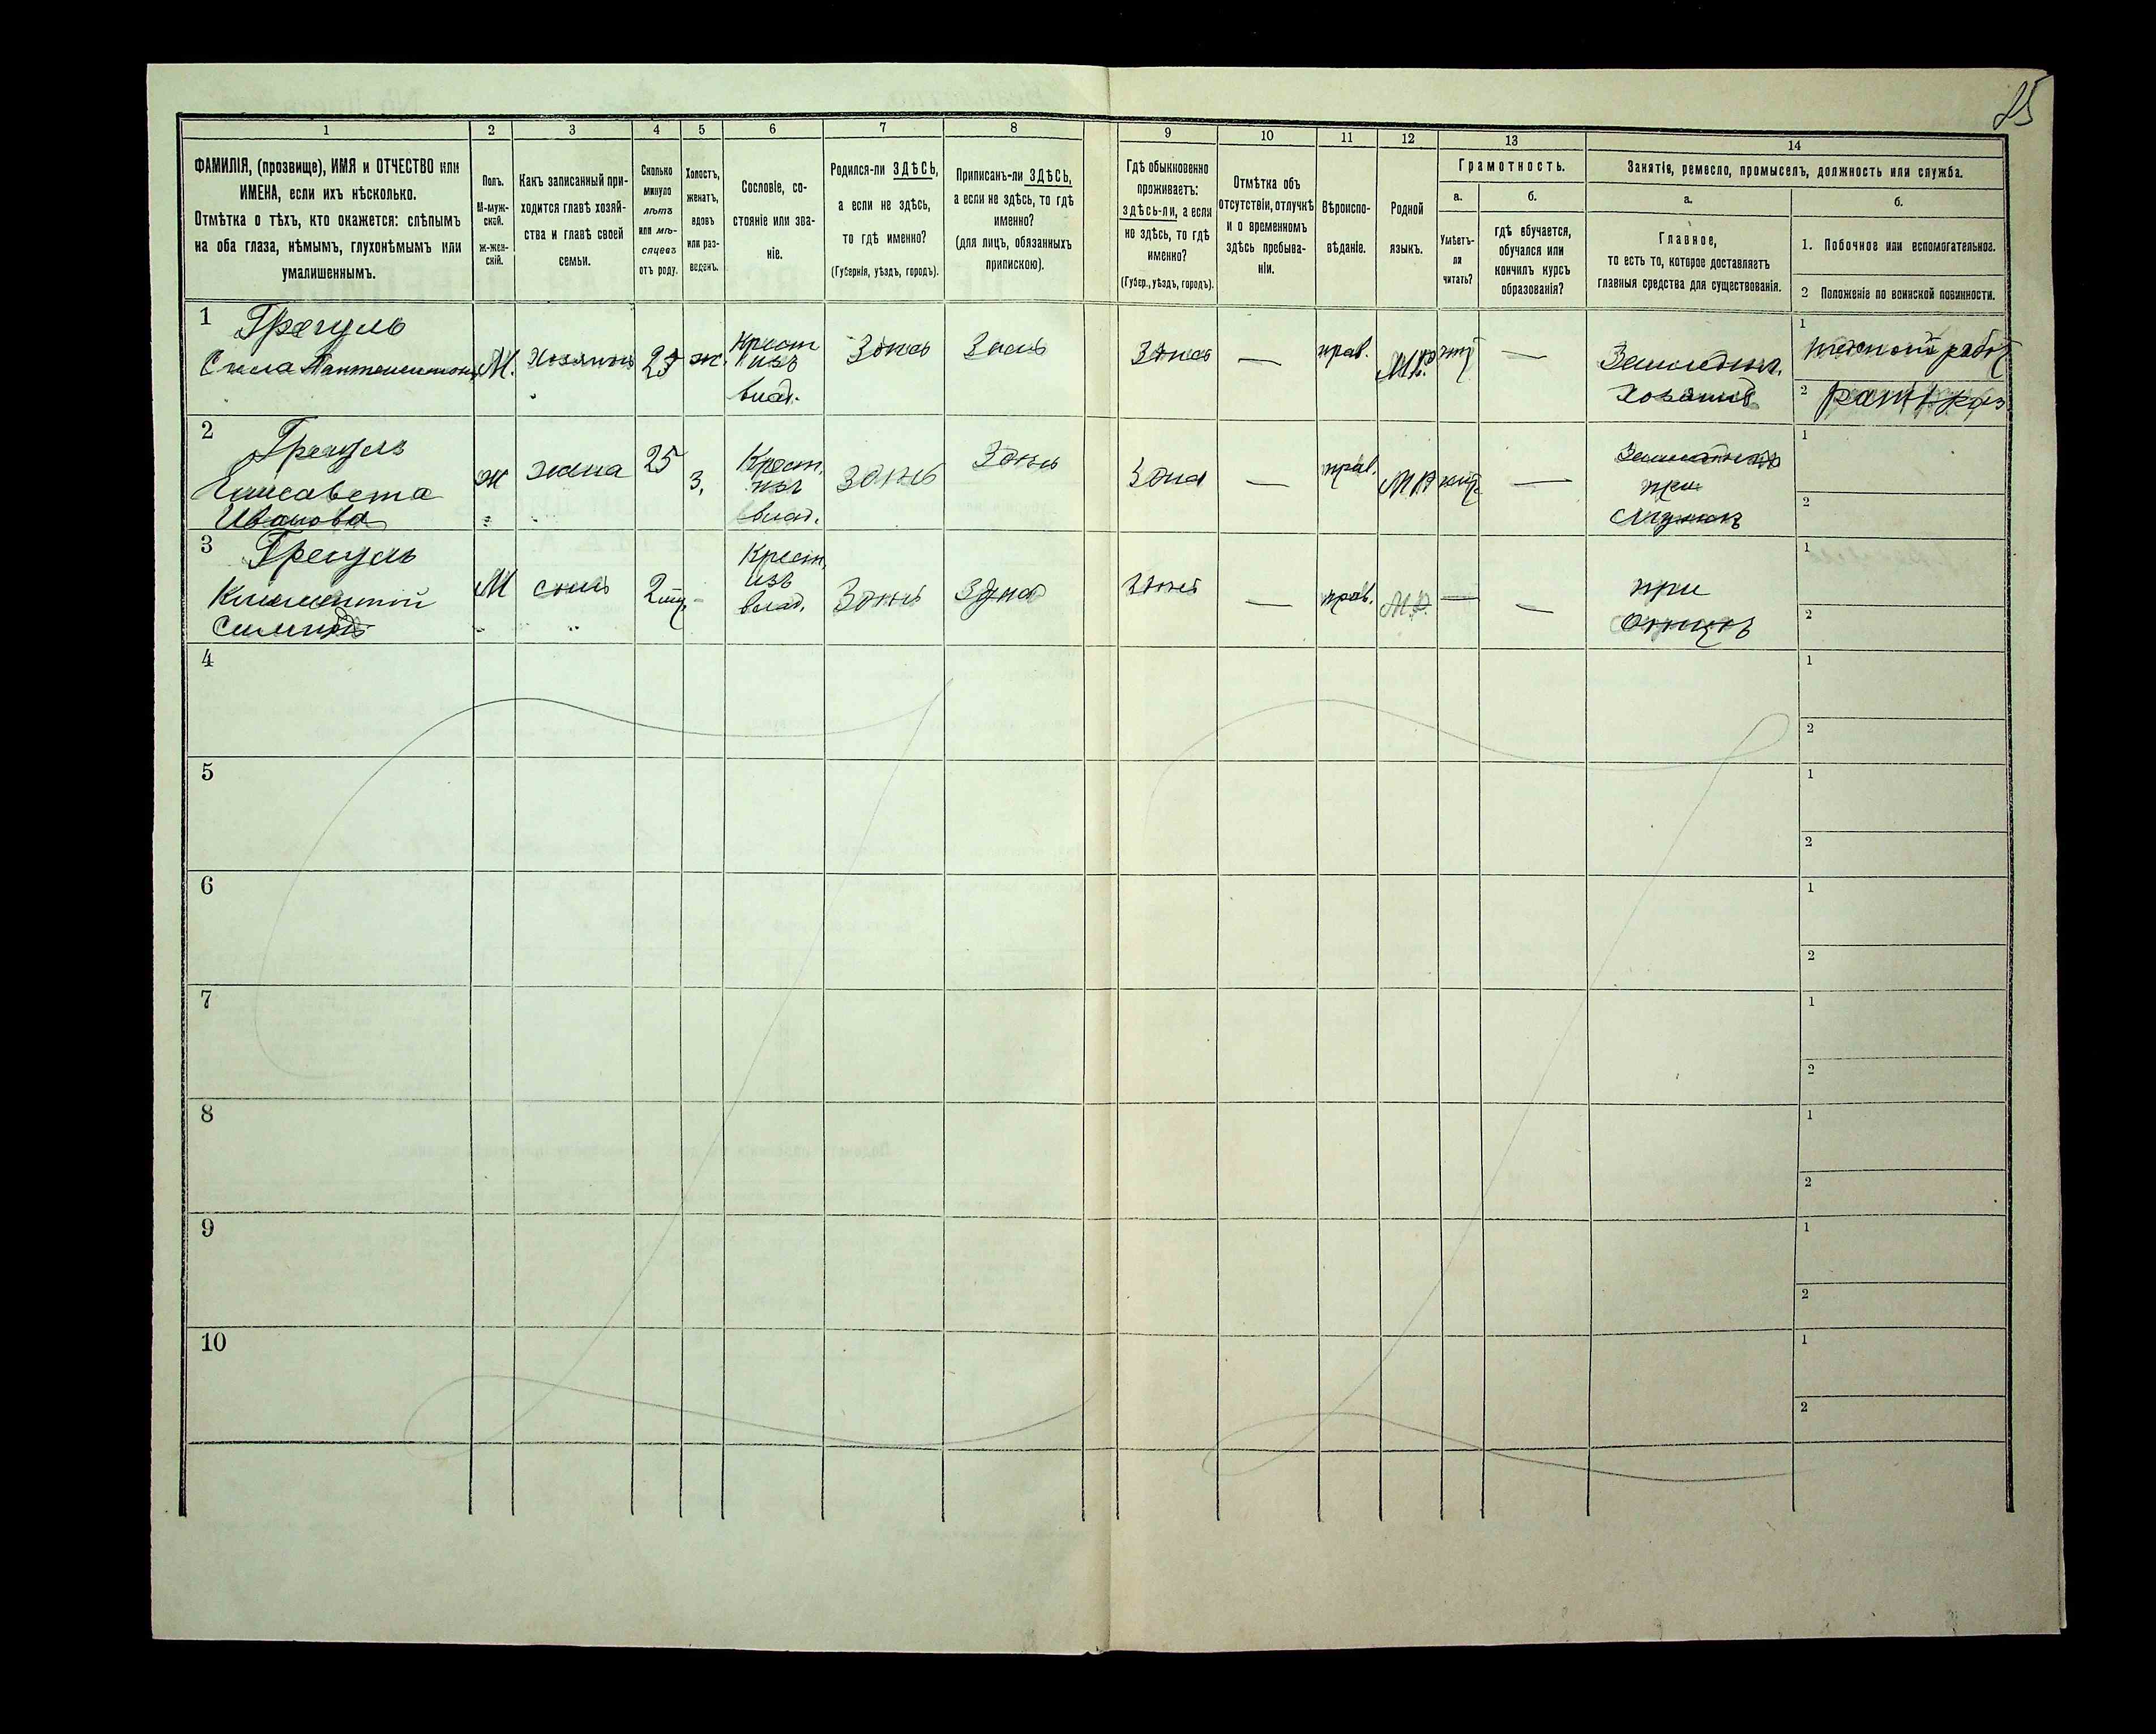 85
1 2 3 4 5 6 7 8 9 10 11 12 13 14
ФАМИЛІЯ, (прозвище), ИМЯ и ОТЧЕСТВО или
ИМЕНА, если ихъ нѣсколько.
Отмѣтка о тѣхъ, кто окажется: слѣпымъ
на оба глаза, нѣмымъ, глухонѣмымъ или
умалишеннымъ.
Полъ.
М-муж-
ской.
ж-жен-
скій.
Какъ записанный при-
ходится главѣ хозяй-
ства и главѣ своей
семьи.
Сколько
минуло
лѣтъ
или мѣ-
сяцевъ
отъ роду.
Холостъ,
женатъ,
вдовъ
или раз-
веденъ.
Сословіе, со-
стояніе или зва-
ніе.
Родился-ли ЗДѢСЬ,
а если не здѣсь,
то гдѣ именно?
(Губернія, уѣздъ, городъ).
Приписанъ-ли ЗДѢСЬ,
а если не здѣсь, то гдѣ
именно?
(для лицъ, обязанныхъ
припискою).
Гдѣ обыкновенно
проживаетъ:
здѣсь-ли, а если
не здѣсь, то гдѣ
именно?
(Губер., уѣздъ, городъ).
Отмѣтка объ
отсутствіи, отлучкѣ
и о временномъ
здѣсь пребыва-
ніи.
Вѣроиспо-
вѣданіе.
Родной
языкъ.
Грамотность.
а.
Умѣетъ-
ли
читать?
б.
гдѣ обучается,
обучался или
кончилъ курсъ
образованія?
Занятіе, ремесло, промыселъ, должность или служба.
а.
Главное,
то есть то, которое доставляетъ
главныя средства для существованія.
б.
1. Побочное или вспомогательное.
2 Положеніе по воинской повинности.
1 Грегуль
Сила М. Хозяинъ 25 ж.
Крест
изъ
влад.
Здѣсь Здѣсь Здѣсь — прав. М.Р. —
Хозяинъ
1
2
2 Грегуль
Елисавета
Иванова
Ж жена 25 З.
Крест.
изъ
влад.
Здѣсь Здѣсь Здѣсь — прав. М.Р. —
при
мужѣ
1
2
3 Грегуль
Климентій
М сынъ 2 —
Крест.
изъ
влад.
Здѣсь Здѣсь Здѣсь — прав. М.Р. — —
при
отцѣ
1
2
4 1
2
5 1
2
6 1
2
7 1
2
8 1
2
9 1
2
10 1
2